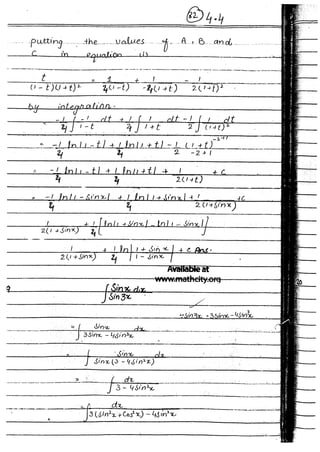 (32) 4.4
putting the values of A, B and
C in equation (i)
t / (1 - t)(1 + t)² = 1 / 4(1 - t) + -1 / 4(1 + t) - 1 / 2(1 + t)²
by integration.
= -1/4 ∫ -1/1-t dt + 1/4 ∫ 1/1+t dt - 1/2 ∫ dt/(1+t)²
= -1/4 ln|1 - t| + 1/4 ln|1 + t| - 1/2 (1 + t)^-2+1 / -2+1
= -1/4 ln|1 - t| + 1/4 ln|1 + t| + 1/2(1+t) + C
= -1/4 ln|1 - Sinx| + 1/4 ln|1 + Sinx| + 1/2(1+Sinx) + C
1/2(1+Sinx) + 1/4 [ln|1 + Sinx| - ln|1 - Sinx|]
1/2(1+Sinx) + 1/4 ln|1 + Sinx / 1 - Sinx| + C Ans.
Available at
www.mathcity.org
∫ Sinx dx / Sin3x
∵ Sin3x = 3Sinx - 4Sin³x
= ∫ Sinx / 3Sinx - 4Sin³x dx
= ∫ Sinx / Sinx(3 - 4Sin²x) dx
= ∫ dx / 3 - 4Sin²x
= ∫ dx / 3(Sin²x + Cos²x) - 4Sin²x